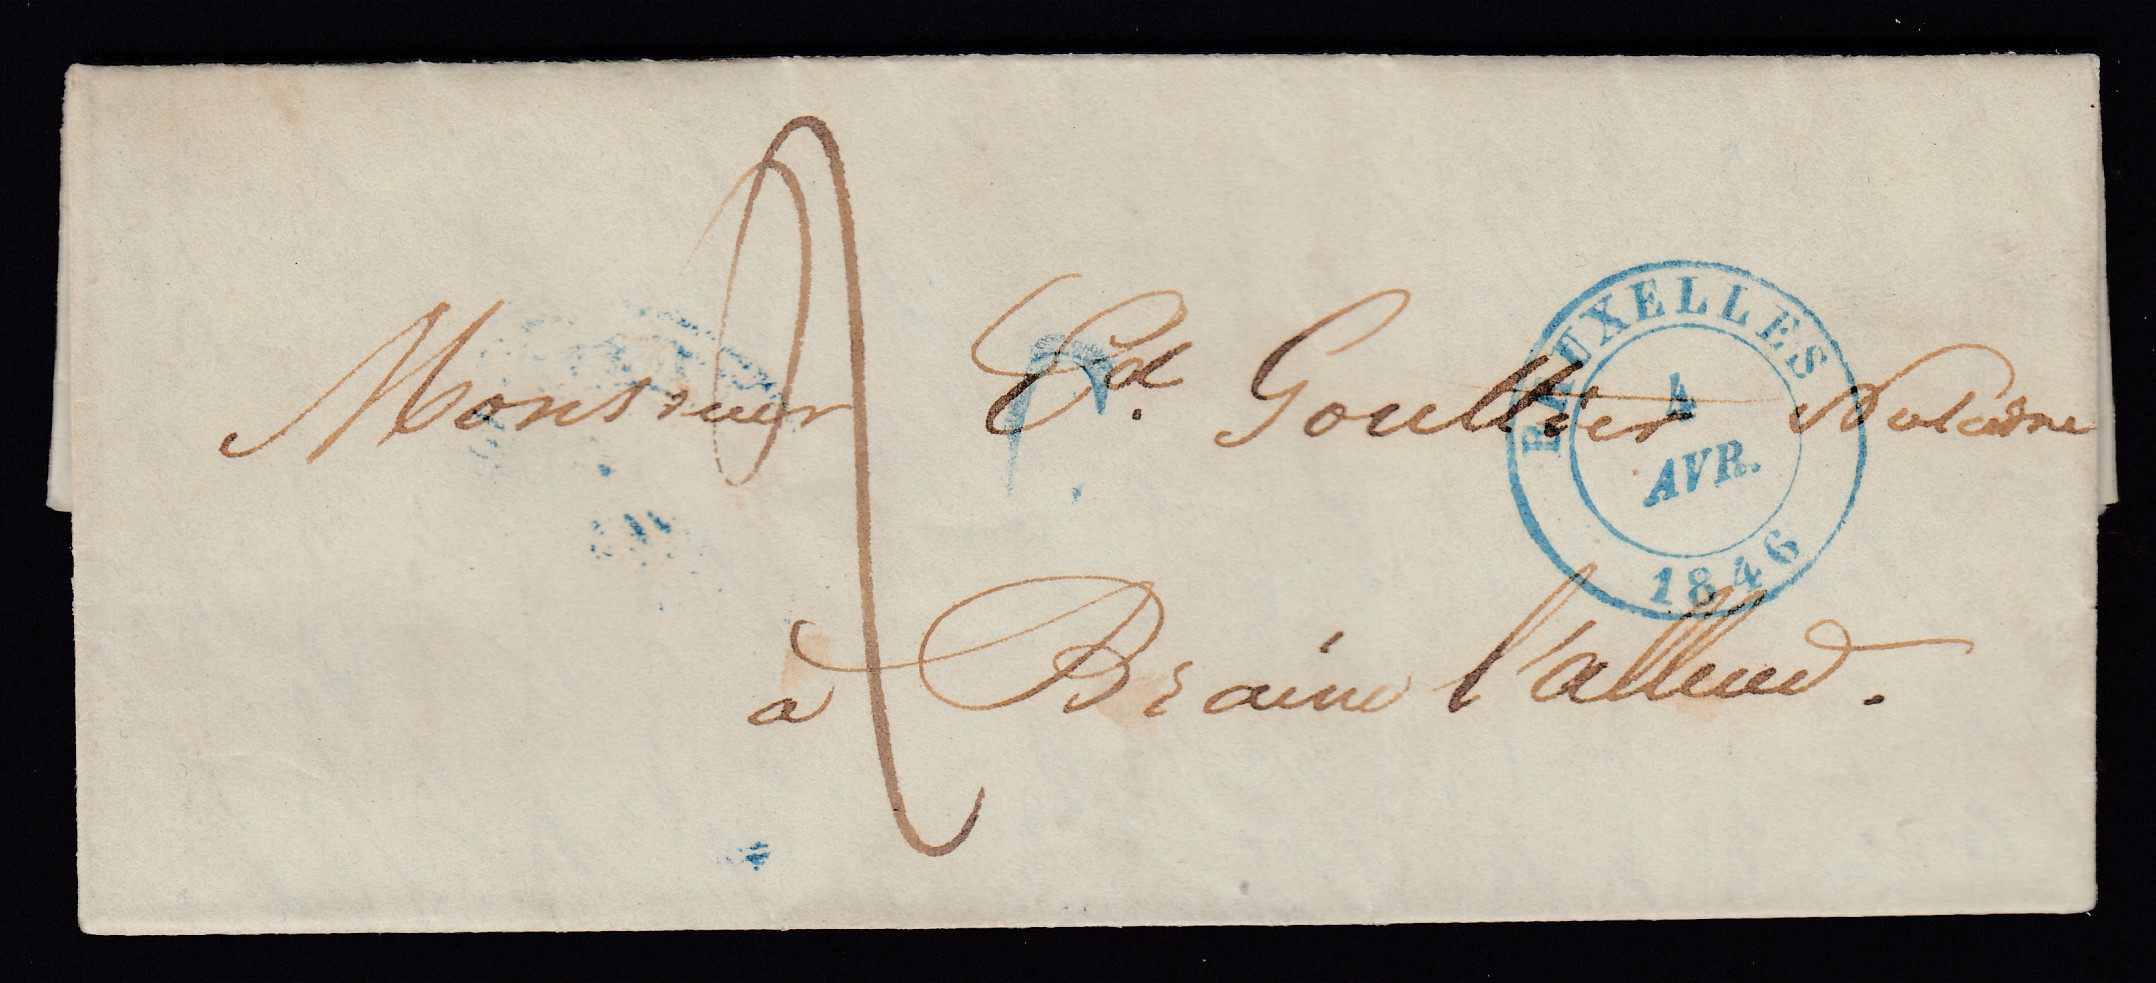 2
Monsieur Ed. Goultier Notaire
à Braine l'alleud.
BRUXELLES
4
AVR.
1846